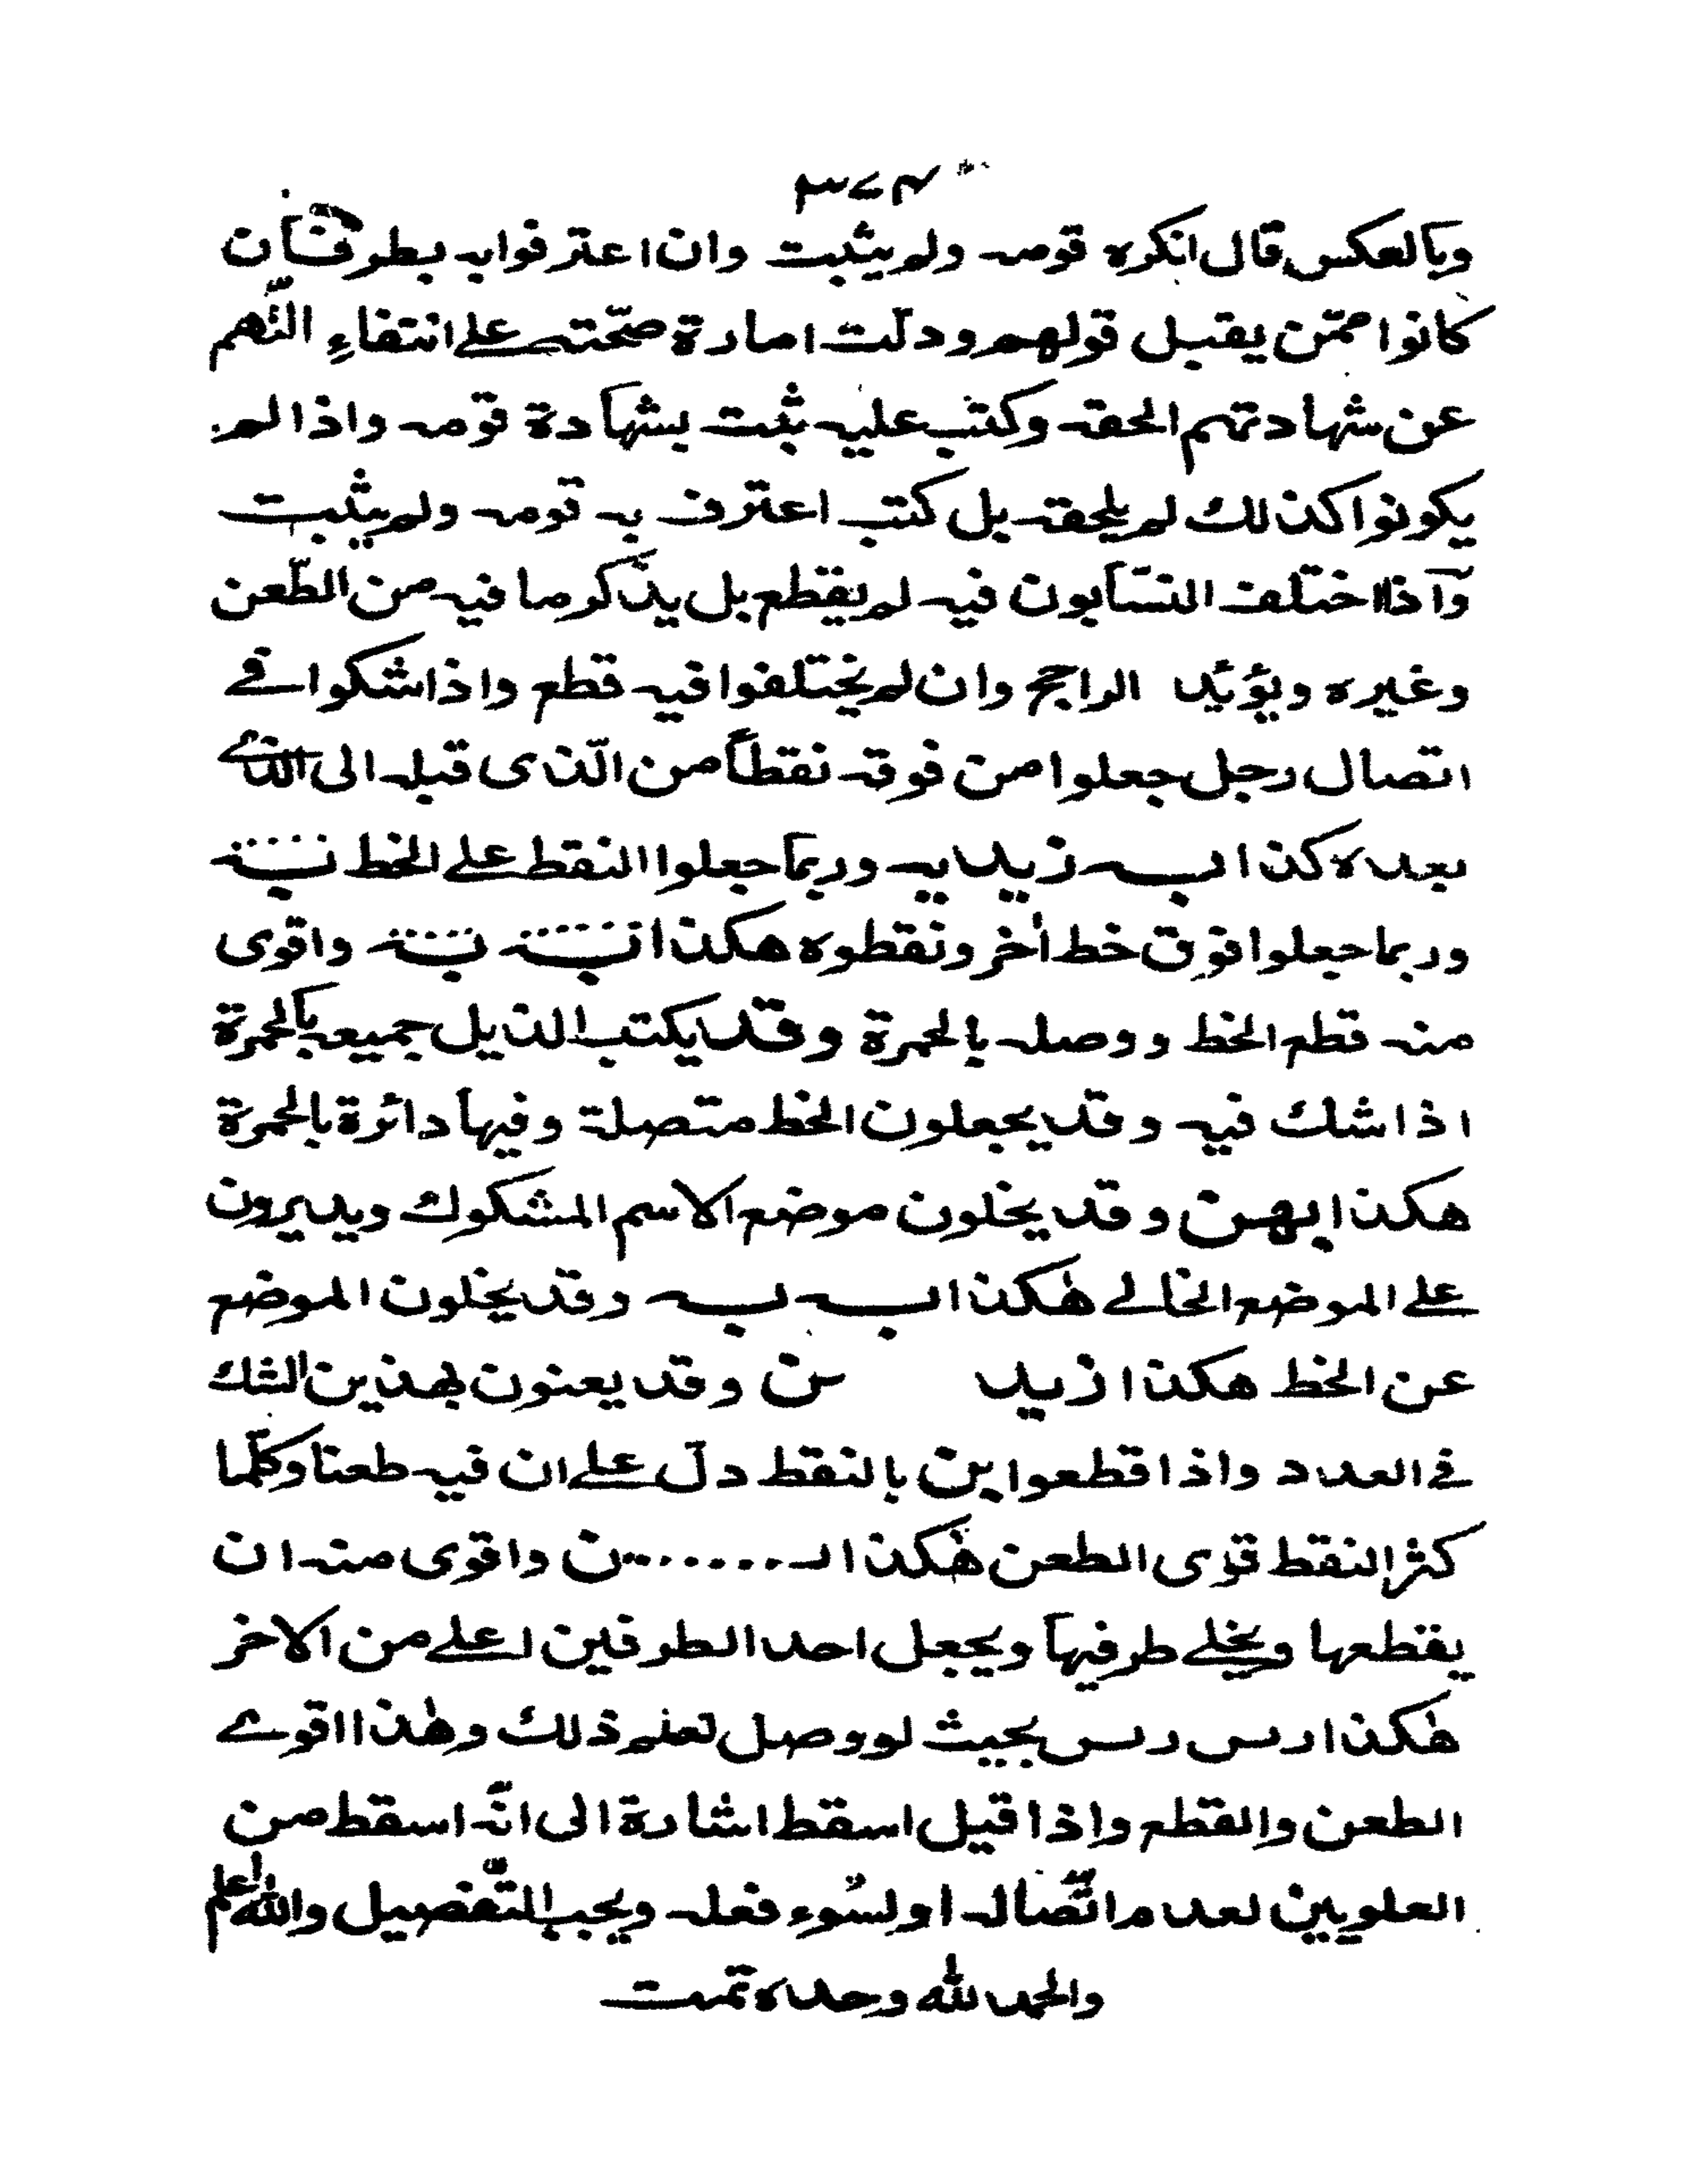 وبالعكس قال انكره قومه ولم يثبت وان اعترفوا به بطرق فان
كانوا ممّن يقبل قولهم ودلّت امارة صحّته على انتفاءِ التّهم
عن شهادتهم الحقه وكتب عليه ثبت بشهادة قومه واذا لم
يكونوا كذلك لم يلحقه بل كتب اعترف به قومه ولم يثبت
وآذا اختلف النسّابون فيه لم يقطع بل يذكر ما فيه من الطّعن
وغيره ويؤيد الراجح وان لم يختلفوا فيه قطع واذا شكوا في
اتصال رجل جعلوا من فوقه نقطاً من الّذى قبله الى الذي
بعده كذا بـــه زيد به وربما جعلوا النقط على الخط
وربما جعلوا فوق خط أخر ونقطوه هكذا واقوى
منه قطع الخط ووصله بالحمرة وقد يكتب الذيل جميعه بالحمرة
اذا شك فيه وقد يجعلون الخط متصلة وفيها دائرة بالحمرة
هكذا بهن وقد يخلون موضع الاسم المشكوك ويديرون
على الموضع الخالي هٰكذا بـــه بـــه وقد يخلون الموضع
عن الخط هكذا زيد بن وقد يعنون بهذين الشك
في العدد واذا قطعوا بن بالنقط دلّ على ان فيه طعنا وكلّما
كثر النقط قوى الطعن هٰكذا بـ........ن واقوى منه ان
يقطعها ويخلي طرفيها ويجعل احد الطرفين اعلى من الاخر
هٰكذا بحيث لو وصل تعلم ذلك وهٰذا اقوى
الطعن والقطع واذا قيل اسقط اشارة الى انّه اسقط من
العلويين لعدم اتّصاله او لسُوء فعله ويجب التّفصيل والله اعلم
والحمد لله وحده تمت